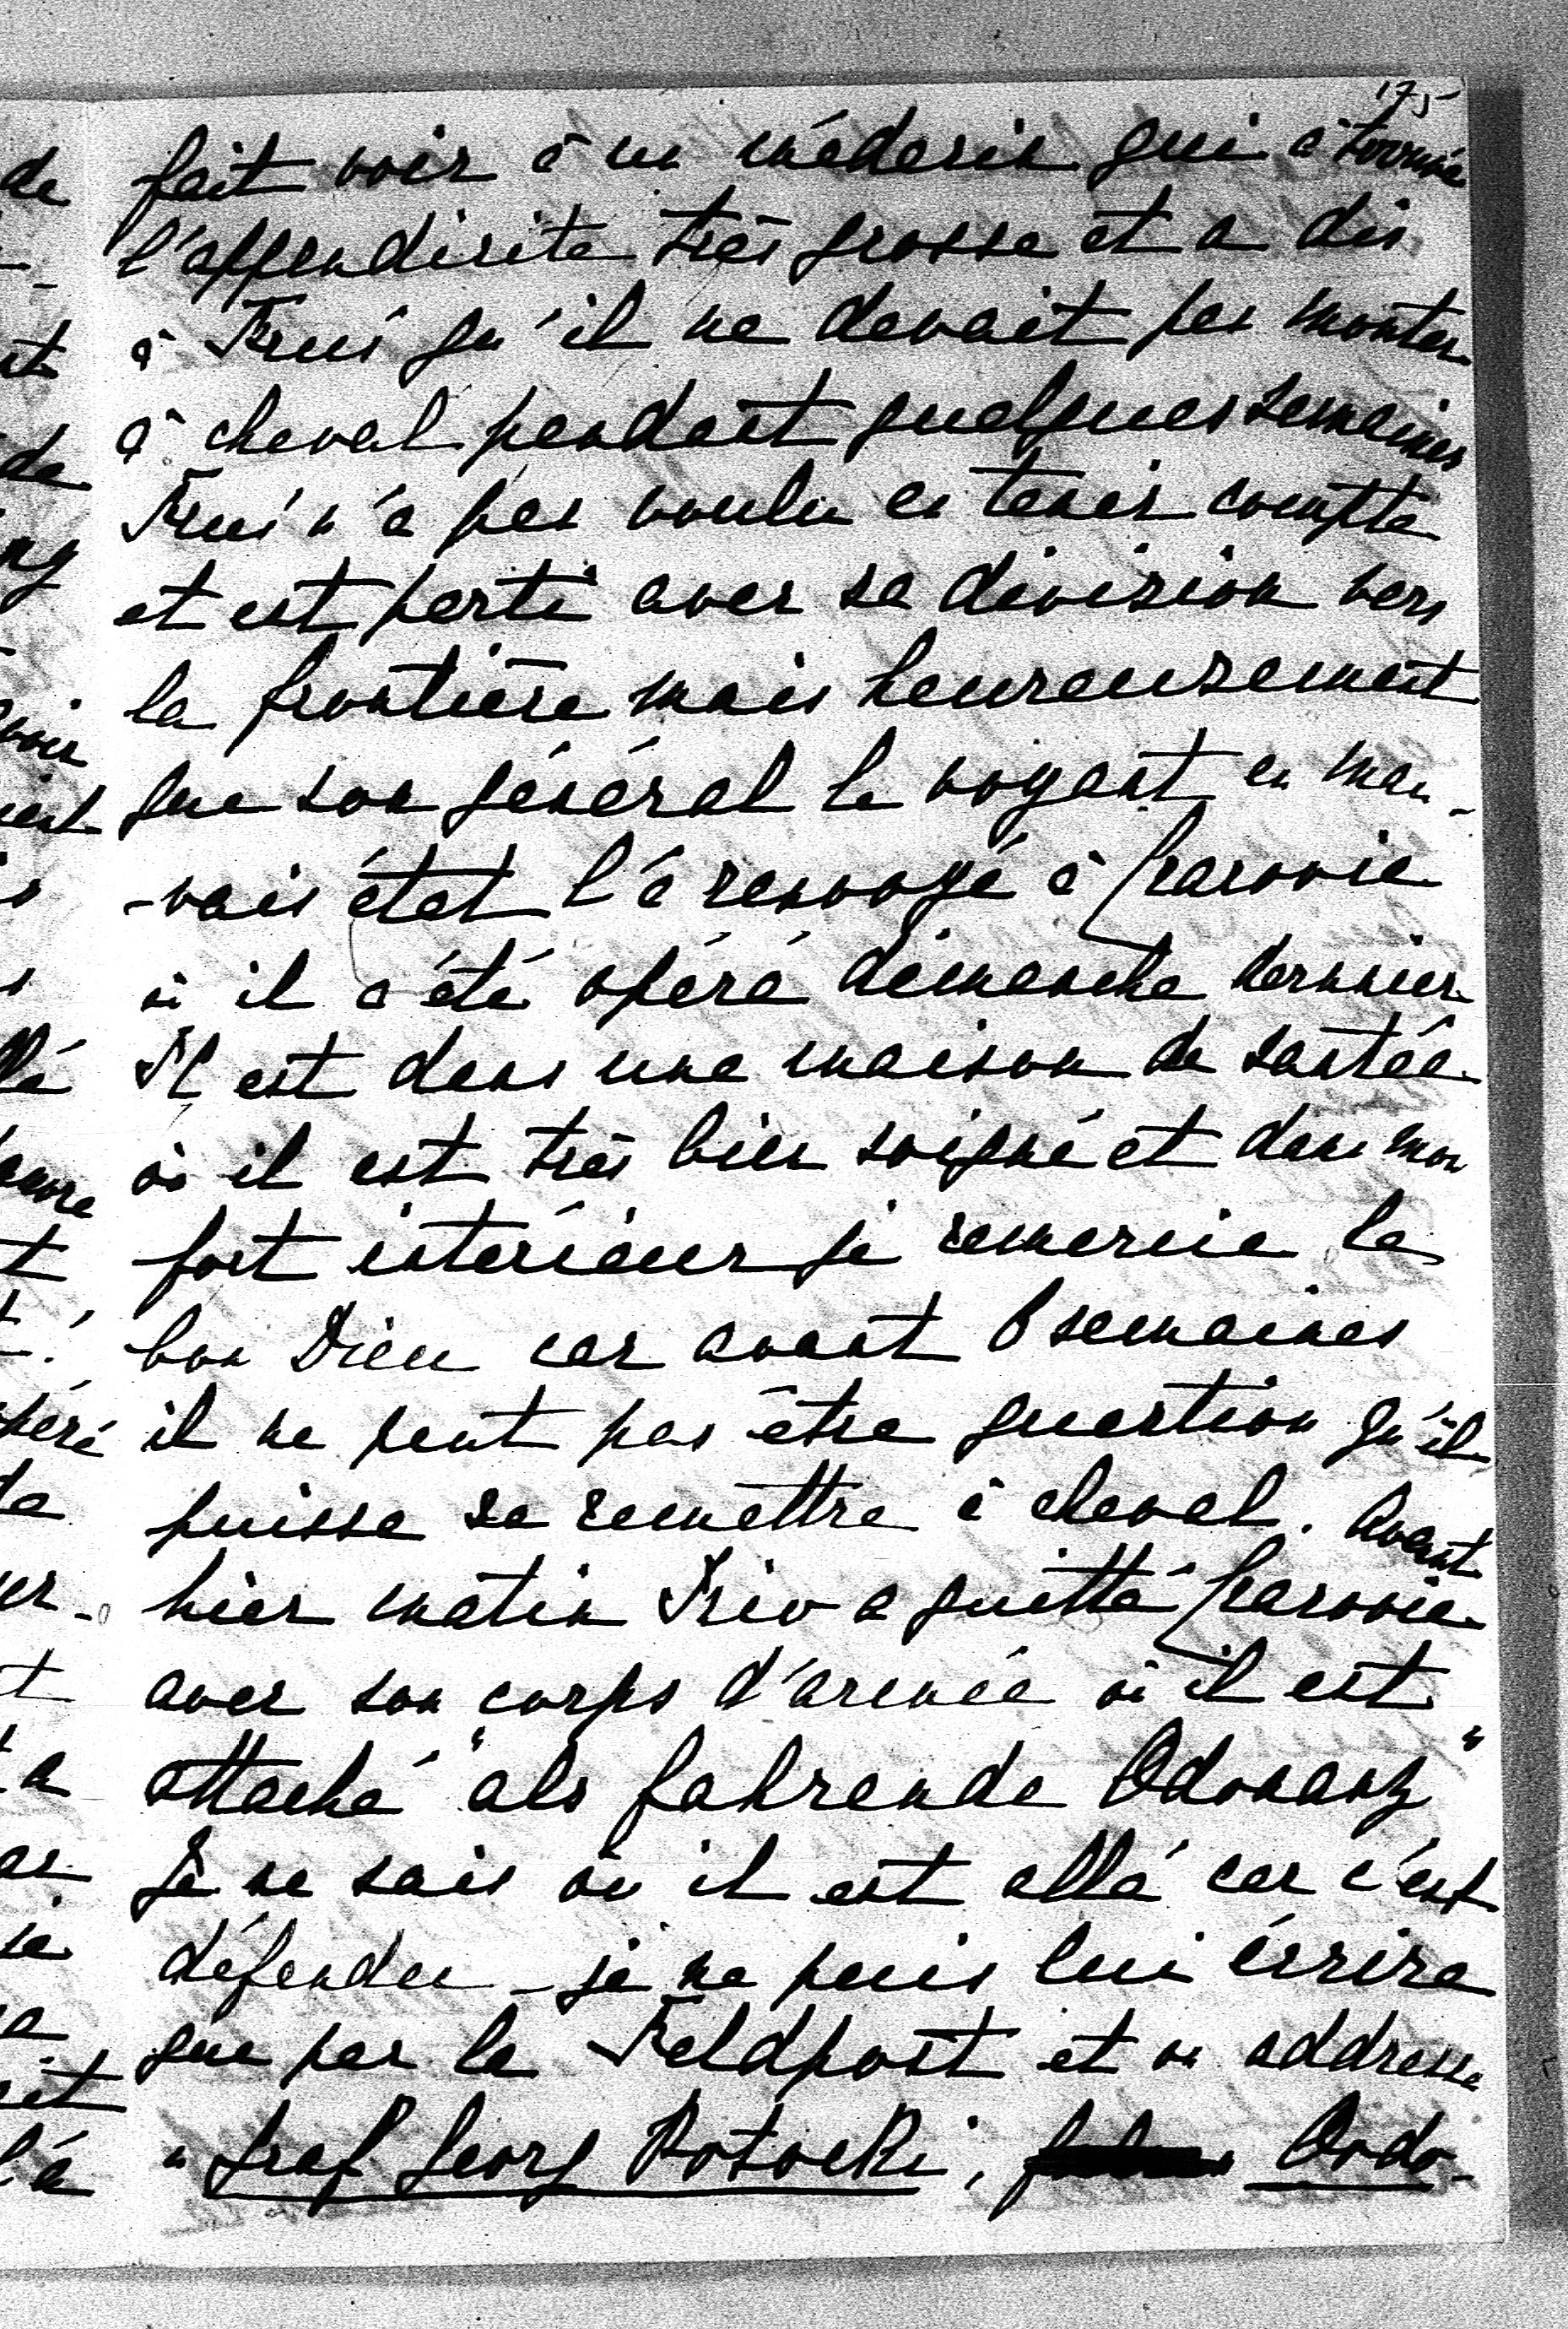 175
fait voir à un médecin qui a trouvé
l'appendicite très grosse et a dis
à qu'il ne devait pas monter
à cheval pendant quelques semaines
n'a pas voulu en tenir compte
et est parti avec sa division vers
la frontière mais heureusement
que son général le voyant en mau-
-vais état l'a renvoyé à Cracovie
où il a été opéré dimanche dernier.
Il est dans une maison de santée
où il est très bien soigné et dans mon
fort intérieur je remercie le
bon Dieu car avant 6 semaines
il ne peut pas être question qu'il
puisse se remettre à cheval. Avant
hier matin a quitté Cracovie
avec son corps d'armée où il est
attaché "als fahrende Odonanz"
Je ne sais où il est allé car c'est
défendu - je ne puis lui écrire
que par la Feldpost et on addresse
"Graf Georg Potocki, Ordo-
de
et
de
voir
llé
t
péré
de
t
a
se
l'a